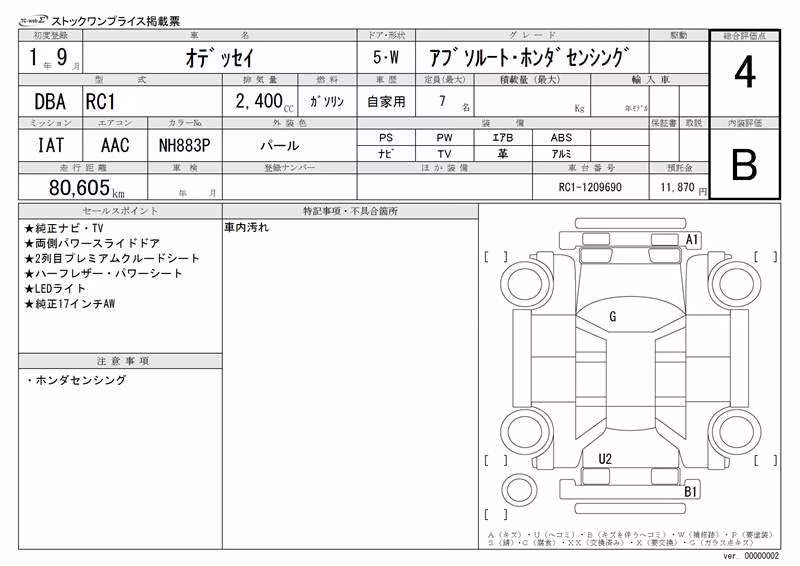 TC-webΣ ストックワンプライス掲載票
初度登録 車名 ドア・形状 グレード 駆動 総合評価点
1年9月 オデッセイ 5・W アブソルート・ホンダセンシング 4
型式 排気量 燃料 車歴 定員(最大) 積載量(最大) 輸入車
DBA RC1 2,400CC ガソリン 自家用 7名 Kg 年モデル
ミッション エアコン カラーNo. 外装色 装備 保証書 取説 内装評価
IAT AAC NH883P パール PS PW エアB ABS B
ナビ TV 革 アルミ
走行距離 車検 登録ナンバー ほか装備 車台番号 預託金
80,605km 年 月 RC1-1209690 11,870円
セールスポイント
★純正ナビ・TV
★両側パワースライドドア
★2列目プレミアムクルードシート
★ハーフレザー・パワーシート
★LEDライト
★純正17インチAW
注意事項
・ホンダセンシング
特記事項・不具合箇所
車内汚れ
A1
[ ] [ ]
G
U2
[ ] [ ]
B1
[ ]
A(キズ)・U(ヘコミ)・B(キズを伴うヘコミ)・W(補修跡)・P(要塗装)
S(錆)・C(腐食)・XX(交換済み)・X(要交換)・G(ガラス点キズ)
ver. 00000002